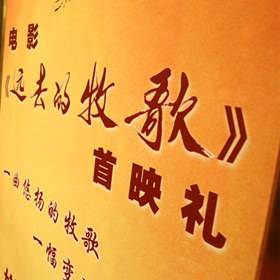 电影
《远去的牧歌》
首映礼
一曲悠扬的牧歌
一幅变